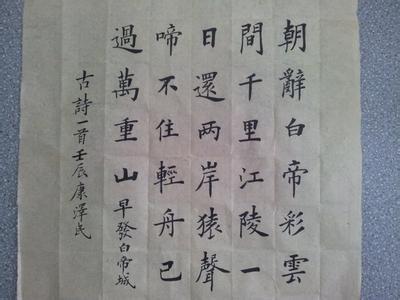 朝辭白帝彩雲
間千里江陵一
日還两岸猿聲
啼不住輕舟已
過萬重山早發白帝城
古詩一首壬辰康澤民